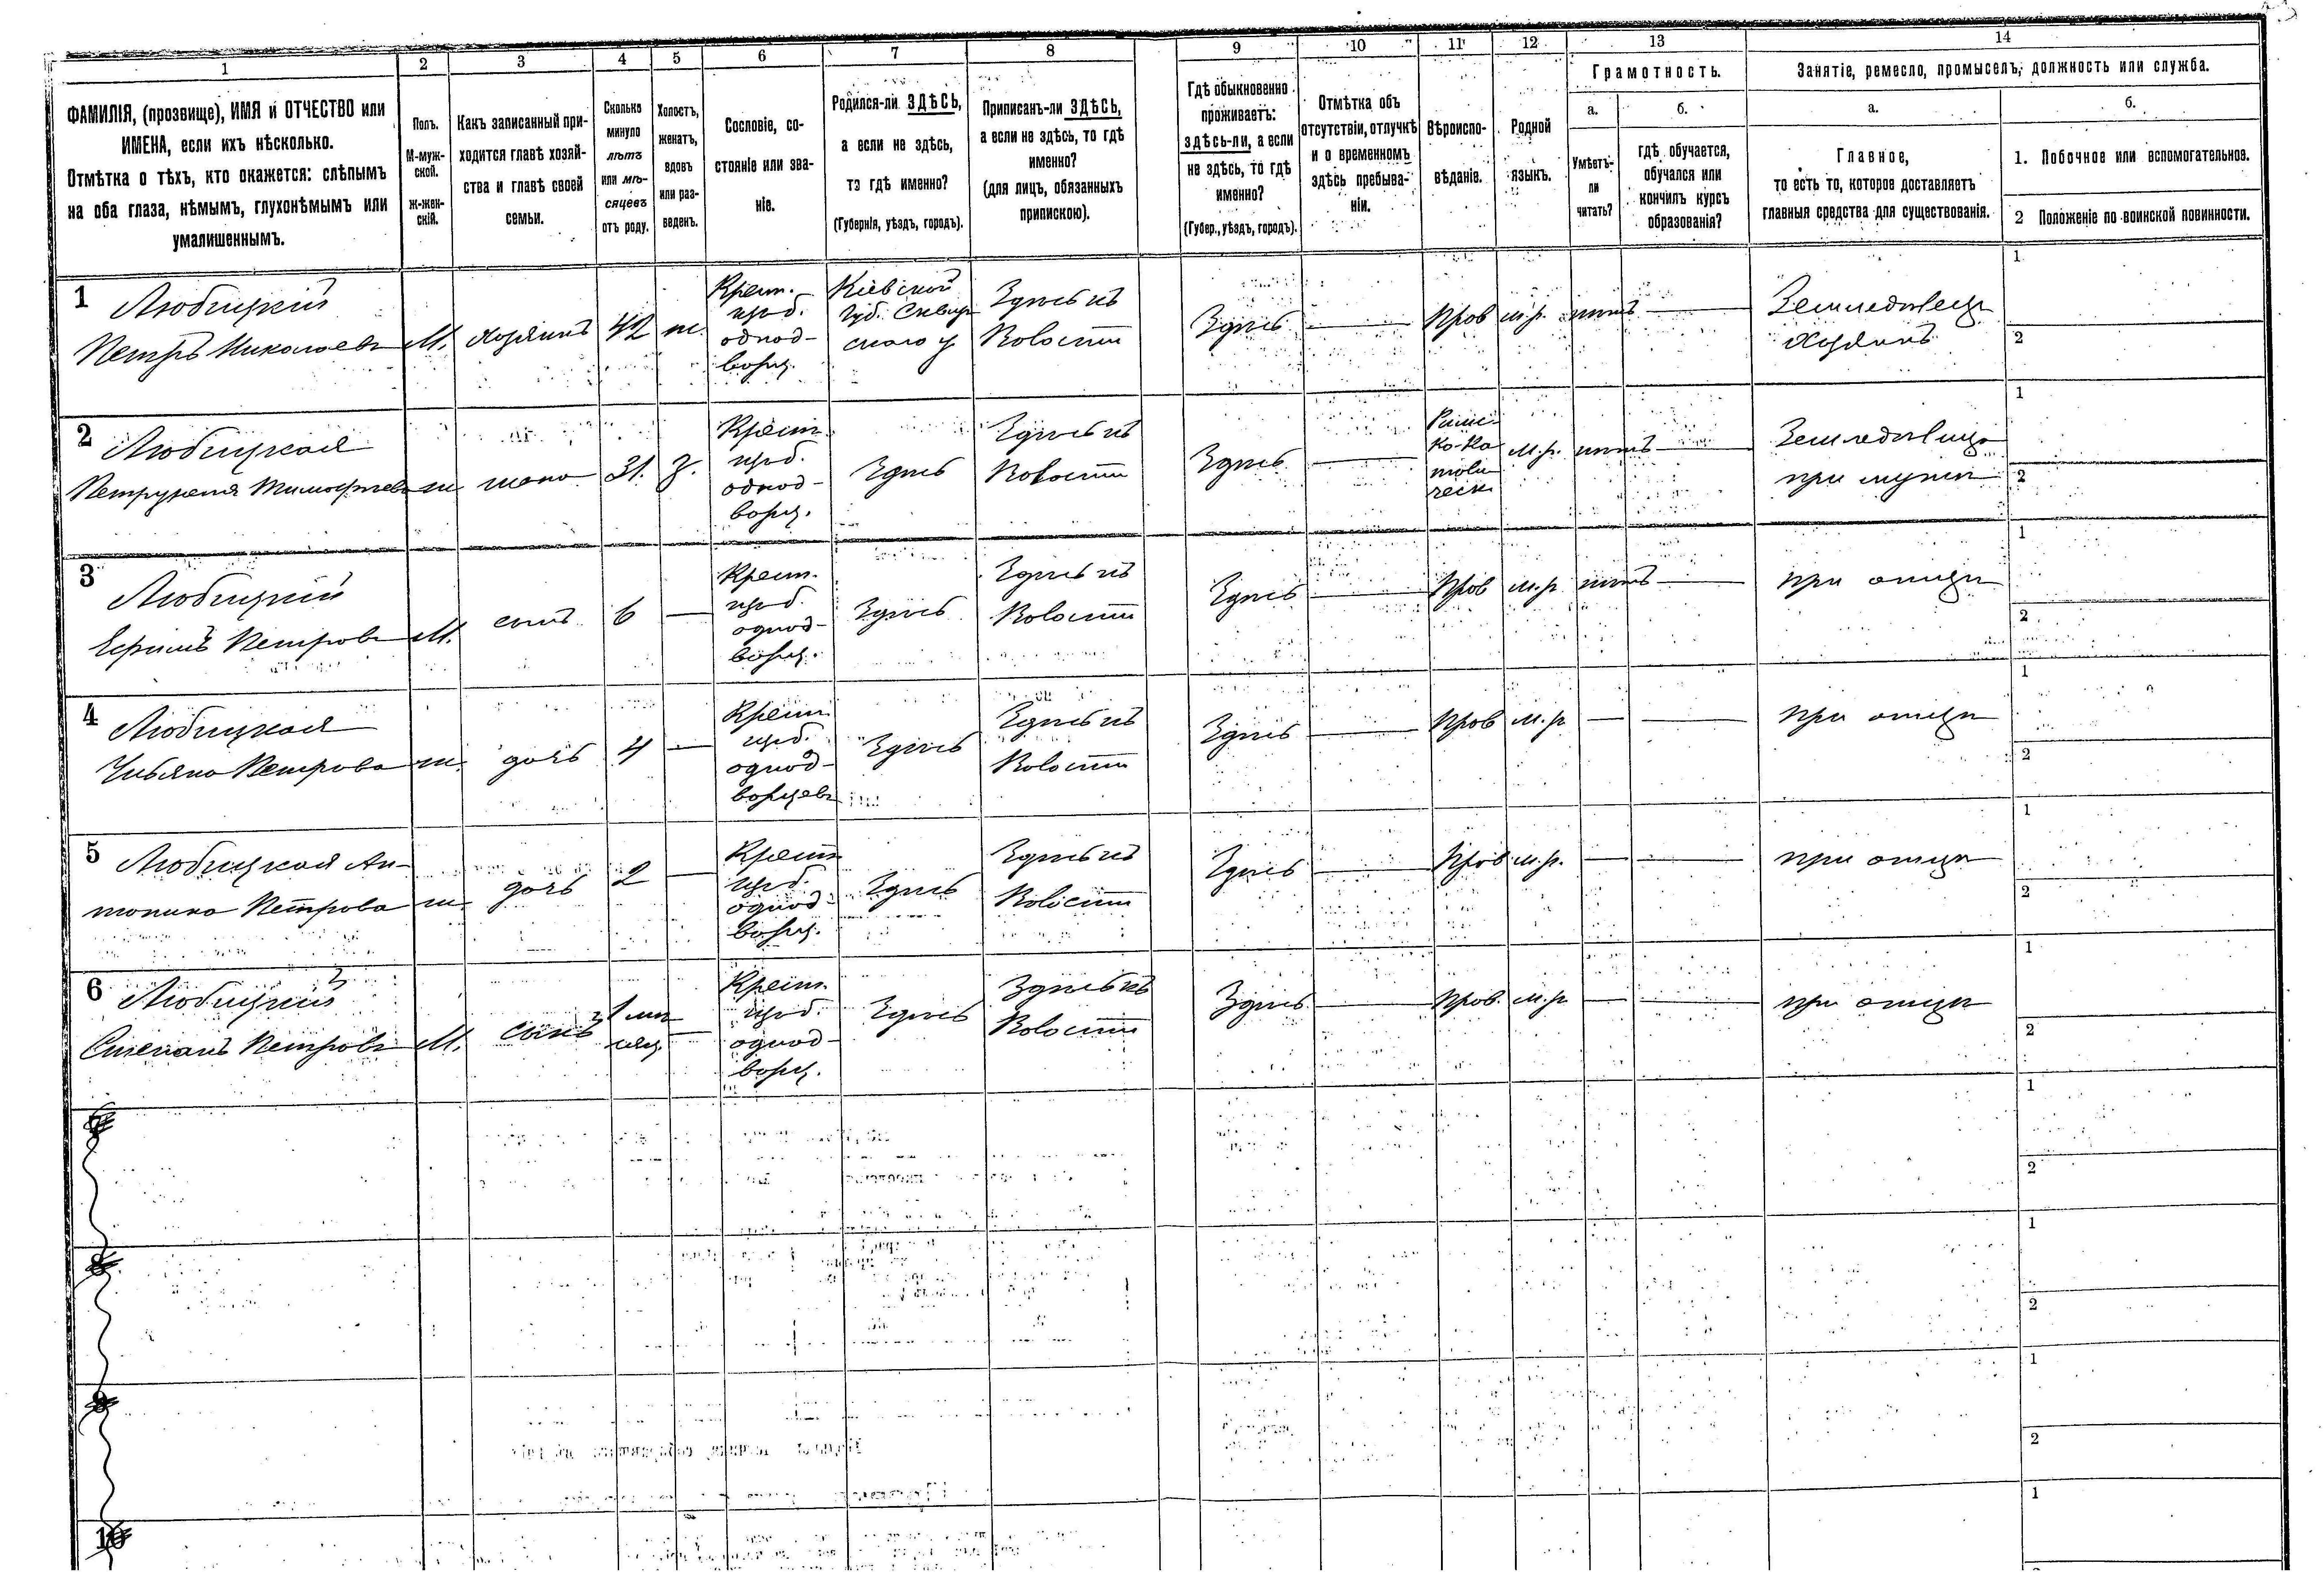 1 2 3 4 5 6 7 8 9 10 11 12 13 14
ФАМИЛІЯ, (прозвище), ИМЯ и ОТЧЕСТВО или
ИМЕНА, если ихъ нѣсколько.
Отмѣтка о тѣхъ, кто окажется: слѣпымъ
на оба глаза, нѣмымъ, глухонѣмымъ или
умалишеннымъ.
Полъ.
М-муж-
ской.
ж-жен-
скій.
Какъ записанный при-
ходится главѣ хозяй-
ства и главѣ своей
семьи.
Сколько
минуло
лѣтъ
или мѣ-
сяцевъ
отъ роду.
Холостъ,
женатъ,
вдовъ
или раз-
веденъ.
Сословіе, со-
стояніе или зва-
ніе.
Родился-ли ЗДѢСЬ,
а если не здѣсь,
то гдѣ именно?
(Губернія, уѣздъ, городъ).
Приписанъ-ли ЗДѢСЬ,
а если не здѣсь, то гдѣ
именно?
(для лицъ, обязанныхъ
припискою).
Гдѣ обыкновенно
проживаетъ:
здѣсь-ли, а если
не здѣсь, то гдѣ
именно?
(Губер., уѣздъ, городъ).
Отмѣтка объ
отсутствіи, отлучкѣ
и о временномъ
здѣсь пребыва-
ніи.
Вѣроиспо-
вѣданіе.
Родной
языкъ.
Грамотность.
а.
Умѣетъ-
ли
читать?
б.
гдѣ обучается,
обучался или
кончилъ курсъ
образованія?
Занятіе, ремесло, промыселъ, должность или служба.
а.
Главное,
то есть то, которое доставляетъ
главныя средства для существованія.
б.
1. Побочное или вспомогательное.
2 Положеніе по воинской повинности.
1
Любицкій
Петръ Николаевъ
М.
хозяинъ
42
ж.
Крест.
одnod-
ворц.
Кіевской
Губ. Сквир
скаго у
Здѣсь въ
Волости
Здѣсь
Прав
м.р.
нѣтъ
Земледѣлец
Хозяинъ
1
2
2
Любицкая
ж
жена
31.
З.
Крест.
однод-
ворц.
Здѣсь
Здѣсь въ
Волости
Здѣсь
Римс-
ко-Ка
толи
ческ.
м.р.
нѣтъ
при мужѣ
1
2
3
Любицкій
Ефимъ Петровъ
М.
сынъ
6
Крест.
однод-
ворц.
Здѣсь
Здѣсь въ
Волости
Здѣсь
Прав
м.р
нѣтъ
при отцѣ
1
2
4
Любицкая
Петрова
ж.
дочь
4
Крест.
однод-
ворцевъ
Здѣсь
Здѣсь въ
Волости
Здѣсь
Прав
м.р
при отцѣ
1
2
5
Любицкая Ан-
тонина Петрова
ж.
дочь
2
Крест
однод-
ворц.
Здѣсь
Здѣсь въ
Волости
Здѣсь
Прав
м.р.
при отцѣ
1
2
6
Любицкій
Степанъ Петровъ
М.
сынъ
1 мѣ
сяц
Крест.
однод-
ворц.
Здѣсь
Здѣсь въ
Волости
Здѣсь
Прав.
м.р
при отцѣ
1
2
1
2
1
2
1
2
10
1